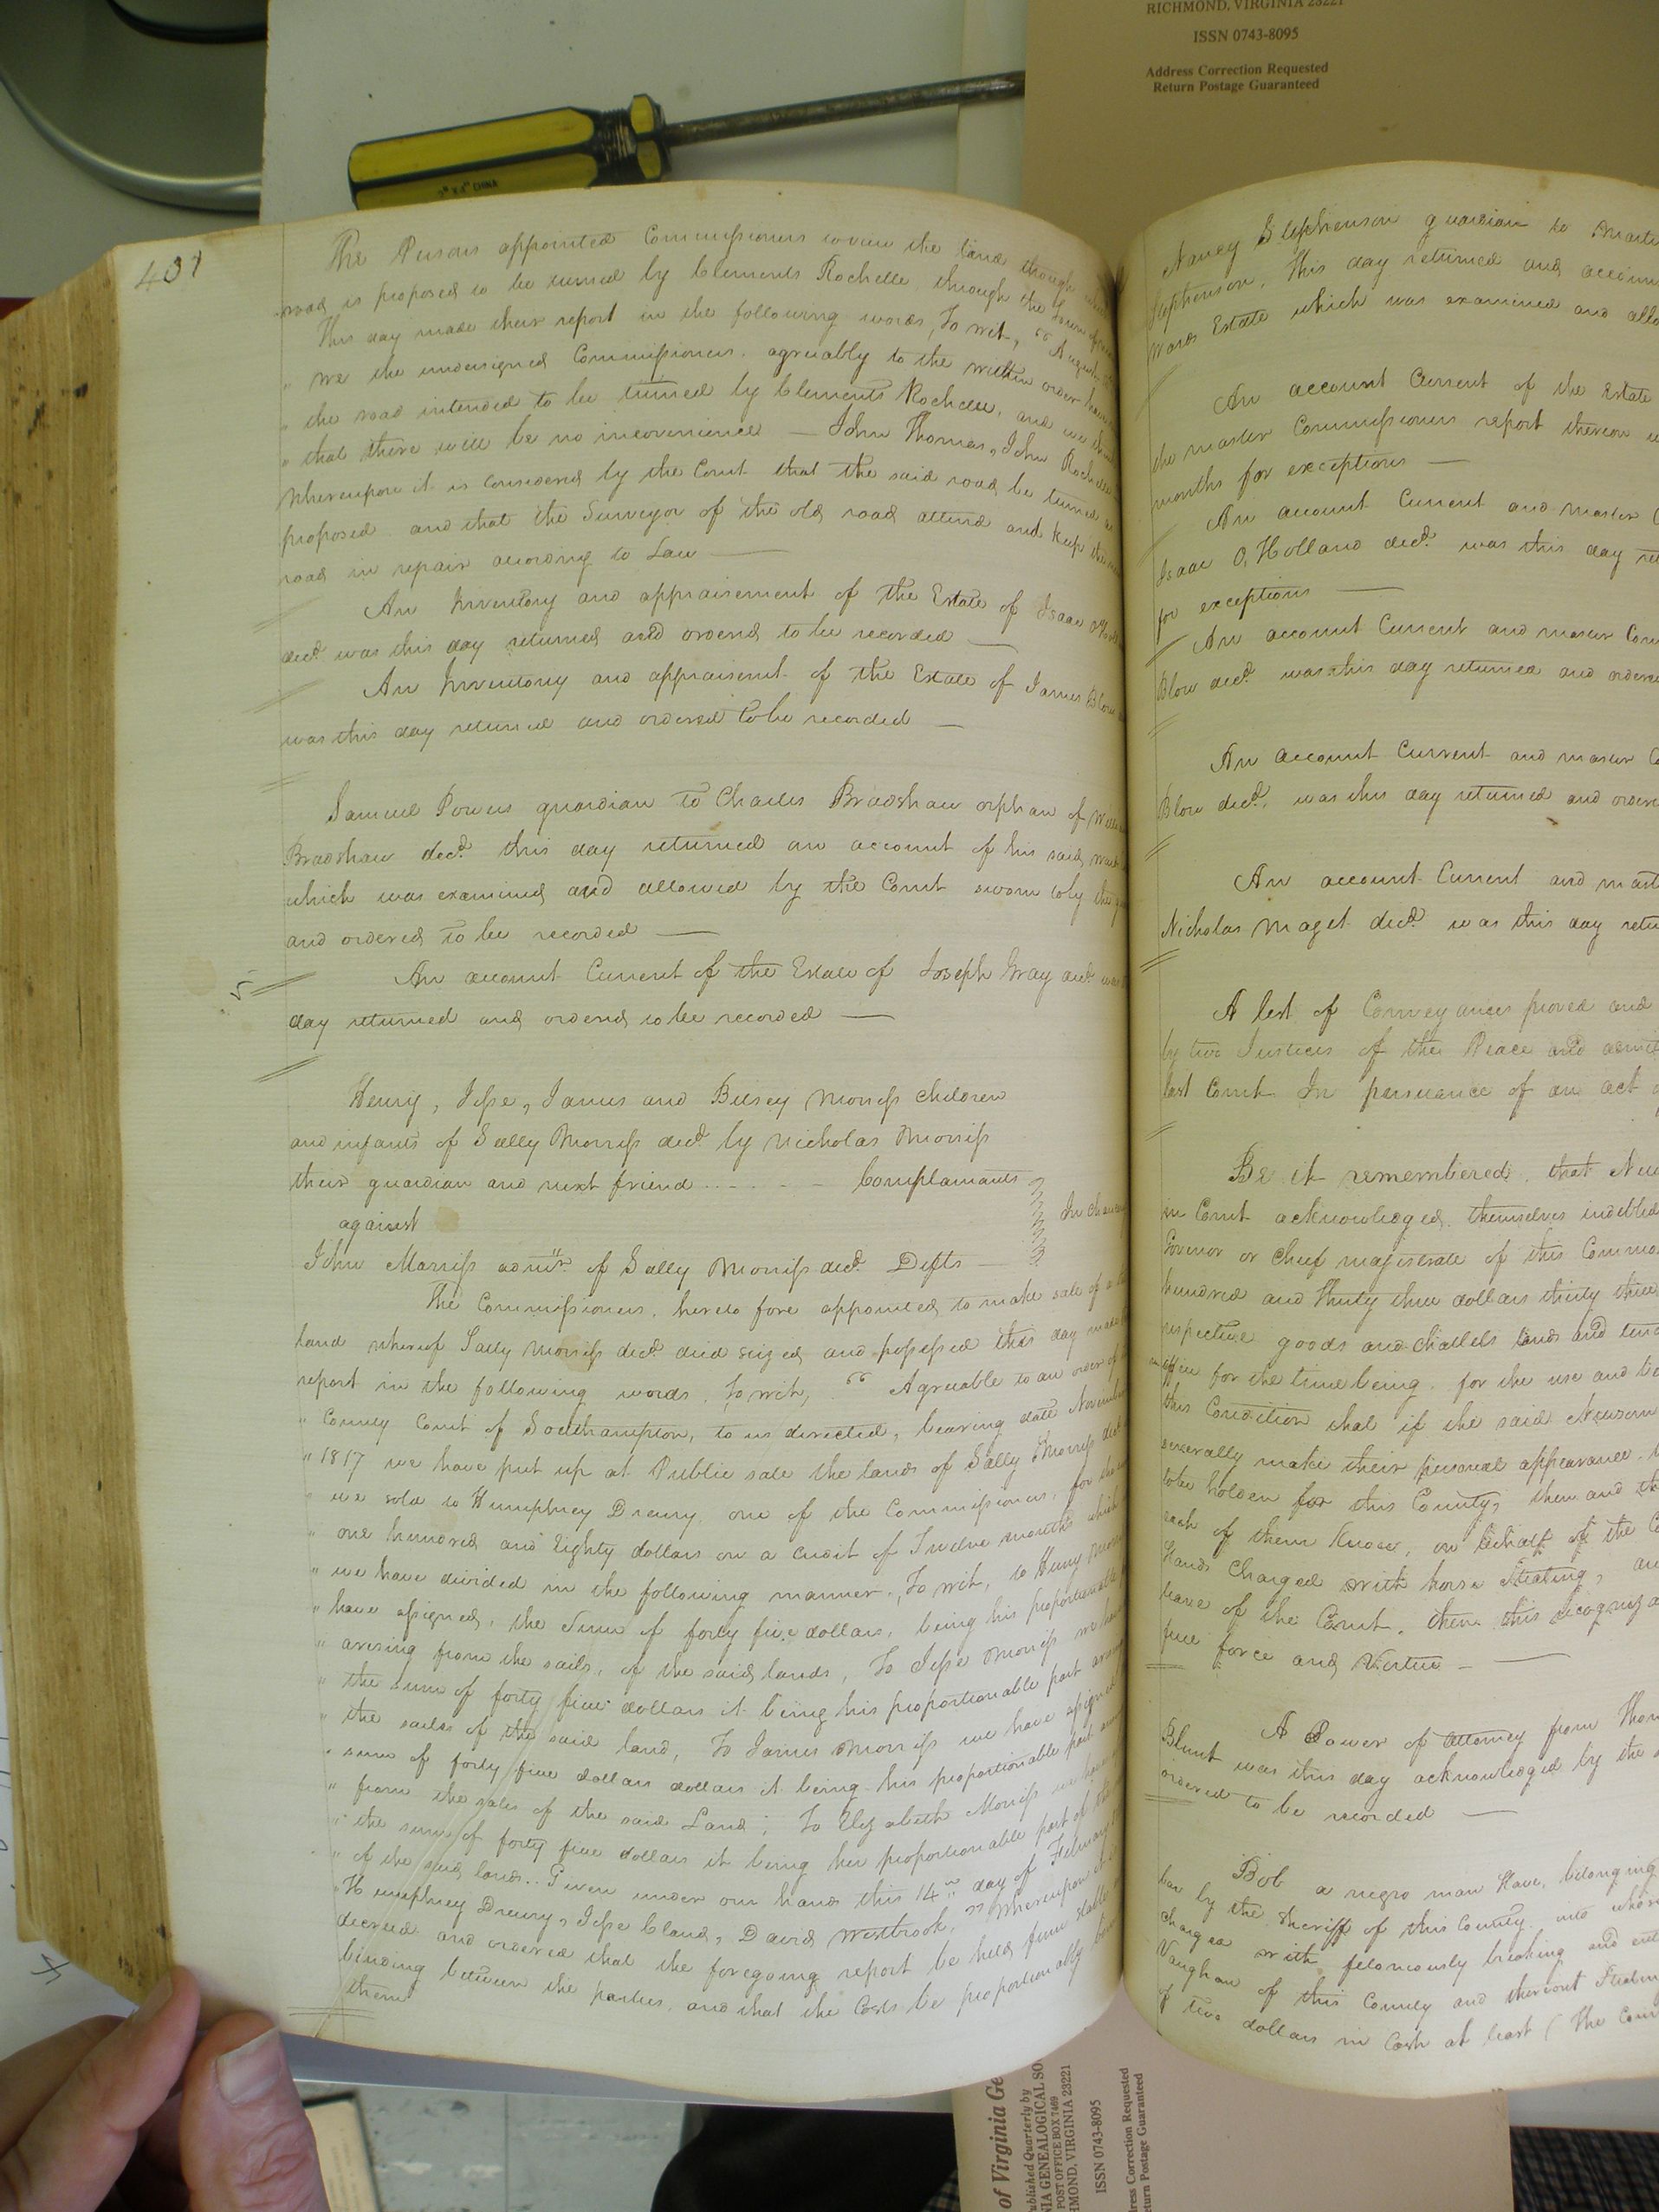 RICHMOND, VIRGINIA 23221
ISSN 0743-8095
Address Correction Requested
Return Postage Guaranteed
401
The Persons appointed Commissioners to view the land though
road is proposed to be turned by Clements Rochelle, through the
This day made their report in the following words, To wit, "August
" We the undersigned Commissioners, agreeably to the within order have
" the road intended to be turned by Clements Rochelle, and we
" that there will be no inconvenience — John Thomas, John Rochelle
Whereupon it is considered by the Court that the said road be turned as
proposed and that the Surveyor of the old road attend and keep
road in repair according to Law —
An Inventory and appraisement of the Estate of Isaac
decd. was this day returned and orderd to be recorded —
An Inventory and appraisemt. of the Estate of James Blow
was this day returned and ordered to be recorded —
Samuel Powers guardian to Charles Bradshaw orphan of
Bradshaw decd. this day returned an account of his said
which was examined and allowed by the Court sworn to by the
and ordered to be recorded —
An account Current of the Estate of Joseph Gray decd. was
day returned and orderd to be recorded —
Henry, Jesse, James and Betsey Morriss children
and infants of Sally Morriss decd. by Nicholas Morriss
their guardian and next friend - - - - - Complainants
against
In
John Morriss admr. of Sally Morriss decd. Defts —
The Commissioners, hereto fore appointed to make sale of
land whereof Sally Morriss decd. died seized and possessed this day made
report in the following words, To wit, " Agreable to an order of
" County Court of Southampton, to us directed, bearing date November
" 1817 we have put up at Public sale the lands of Sally Morriss decd.
" we sold to Humphrey Drewry one of the Commissioners, for the
" one hundred and Eighty dollars on a credit of Twelve months which
" we have divided in the following manner, To wit, to Henry
" have assigned, the Sum of forty five dollars, being his proportionable
" arising from the sails, of the said lands, To Jesse Morriss we have
" the sum of forty five dollars it being his proportionable part
" the sailes of the said land, To James Morriss we have assigned
" sum of forty five dollars dollars it being his proportionable part
" from the sales of the said Land; To Elizabeth Morriss we have
" the sum of forty five dollars it being her proportionable part of the
" of the said lands.. Given under our hands this 14th day of February
" Humphrey Drewry, Jesse Cland, David Westbrook," Whereupon it is
decreed and ordered that the foregoing report be held firm stable
binding between the parties, and that the Costs be proportionably
them
Nancy Stephenson guardian to
Stephenson, This day returned and
Wards Estate which was examined and
An account Current of the Estate
the master Commissioners report thereon
months for exceptions —
An account Current and master
Isaac O, Holland decd. was this day
for exceptions —
An account Current and master
Blow decd. was this day returned and
An account Current and master
Blow decd. was this day returned and
An account Current and
Nicholas Maget decd. was this day
A list of Conveyances proved and
by two Justices of the Peace and
last Court In persuance of an act
Be it remembered, that
in Court acknowledged themselves indebted
Governor or Chief magistrate of this
hundred and thirty three dollars thirty three
respective goods and chattels lands and
office for the time being, for the use and
this Condition that if the said Newsom
severally make their personal appearance
to be holden for this County, then and
each of them know, on behalf of the
stands charged with horse stealing,
leave of the Court, then this
full force and Virtue —
A Power of attorney from
Blunt was this day acknowledged by the
ordered to be recorded —
Bob a negro man slave, belonging
bar by the sheriff of this County into whose
charged with feloniously breaking and
Vaughan of this County and thereout
of two dollars in Cash at least (The
of Virginia
Published Quarterly by
GENEALOGICAL
POST OFFICE BOX 7469
RICHMOND, VIRGINIA 23221
ISSN 0743-8095
Address Correction Requested
Return Postage Guaranteed